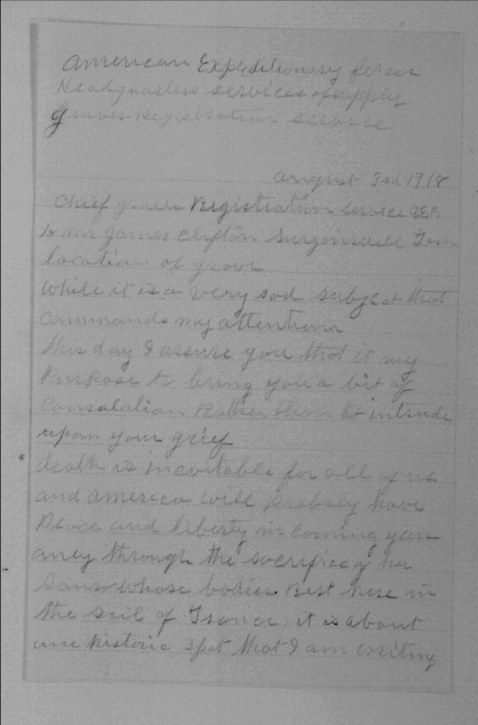 American Expeditionary forces
Headquarters services of supply
graves Registration service
august 3rd 1918
Chief graves Registration service AEF
to mr James Clifton Surgoinsville Tenn
location of grave
while it is a very sad subject that
commands my attention
this day I assure you that it my
Purpose to bring you a bit of
Consolation Rather than to intrude
upon your grief
death is inevitable for all of us
and america will Probaly have
Peace and liberty in coming years
only through the sacrifice of her
Sons whose bodies Rest here in
the soil of France. it is about
one historic spot that I am writing